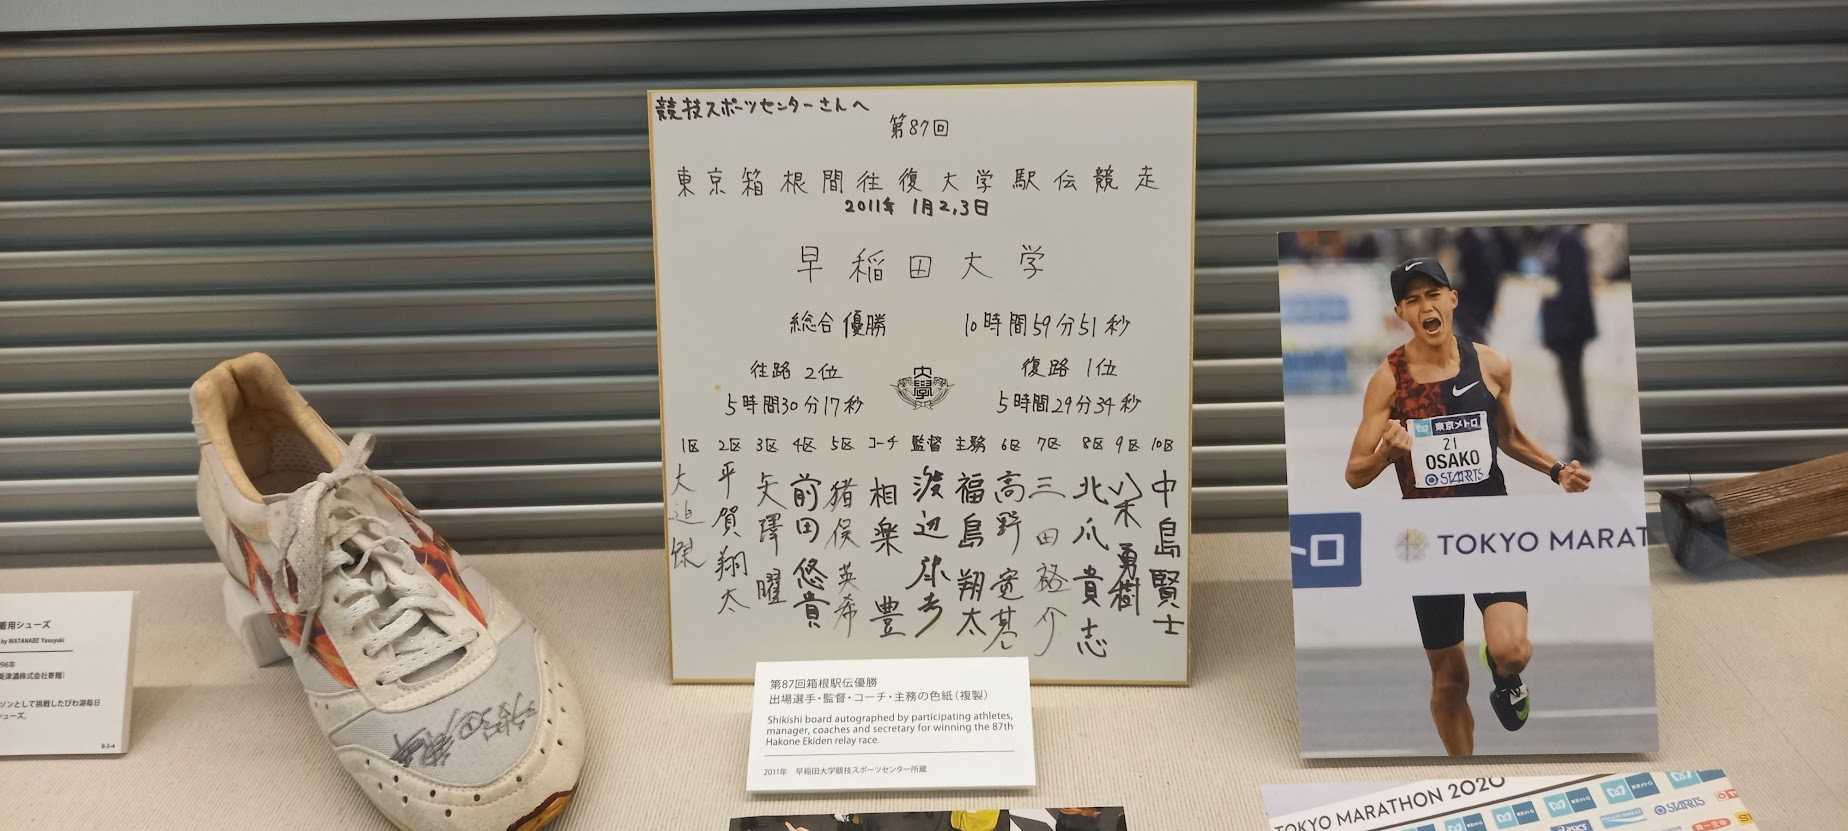 競技スポーツセンターさんへ
第87回
東京箱根間往復大学駅伝競走
2011年 1月2,3日
早稲田大学
総合優勝 10時間59分51秒
往路 2位 復路 1位
大學
5時間30分17秒 5時間29分34秒
1区 2区 3区 4区 5区 コーチ 監督 主務 6区 7区 8区 9区 10区
大迫傑
平賀翔太
矢澤曜
前田悠貴
猪俣英希
相楽豊
渡辺康幸
福島翔太
高野寛基
三田裕介
北爪貴志
八木勇樹
中島賢士
第87回箱根駅伝優勝
出場選手・監督・コーチ・主務の色紙（複製）
Shikishi board autographed by participating athletes,
manager, coaches and secretary for winning the 87th
Hakone Ekiden relay race.
2011年 早稲田大学競技スポーツセンター所蔵
着用シューズ
by WATANABE Yasuyuki
96年
ソンとして挑戦したびわ湖毎日
ューズ。
B-3-4
東京メトロ
21
OSAKO
STARTS
トロ
TOKYO MARAT
TOKYO MARATHON 2020
東京メトロ
STARTS
asics